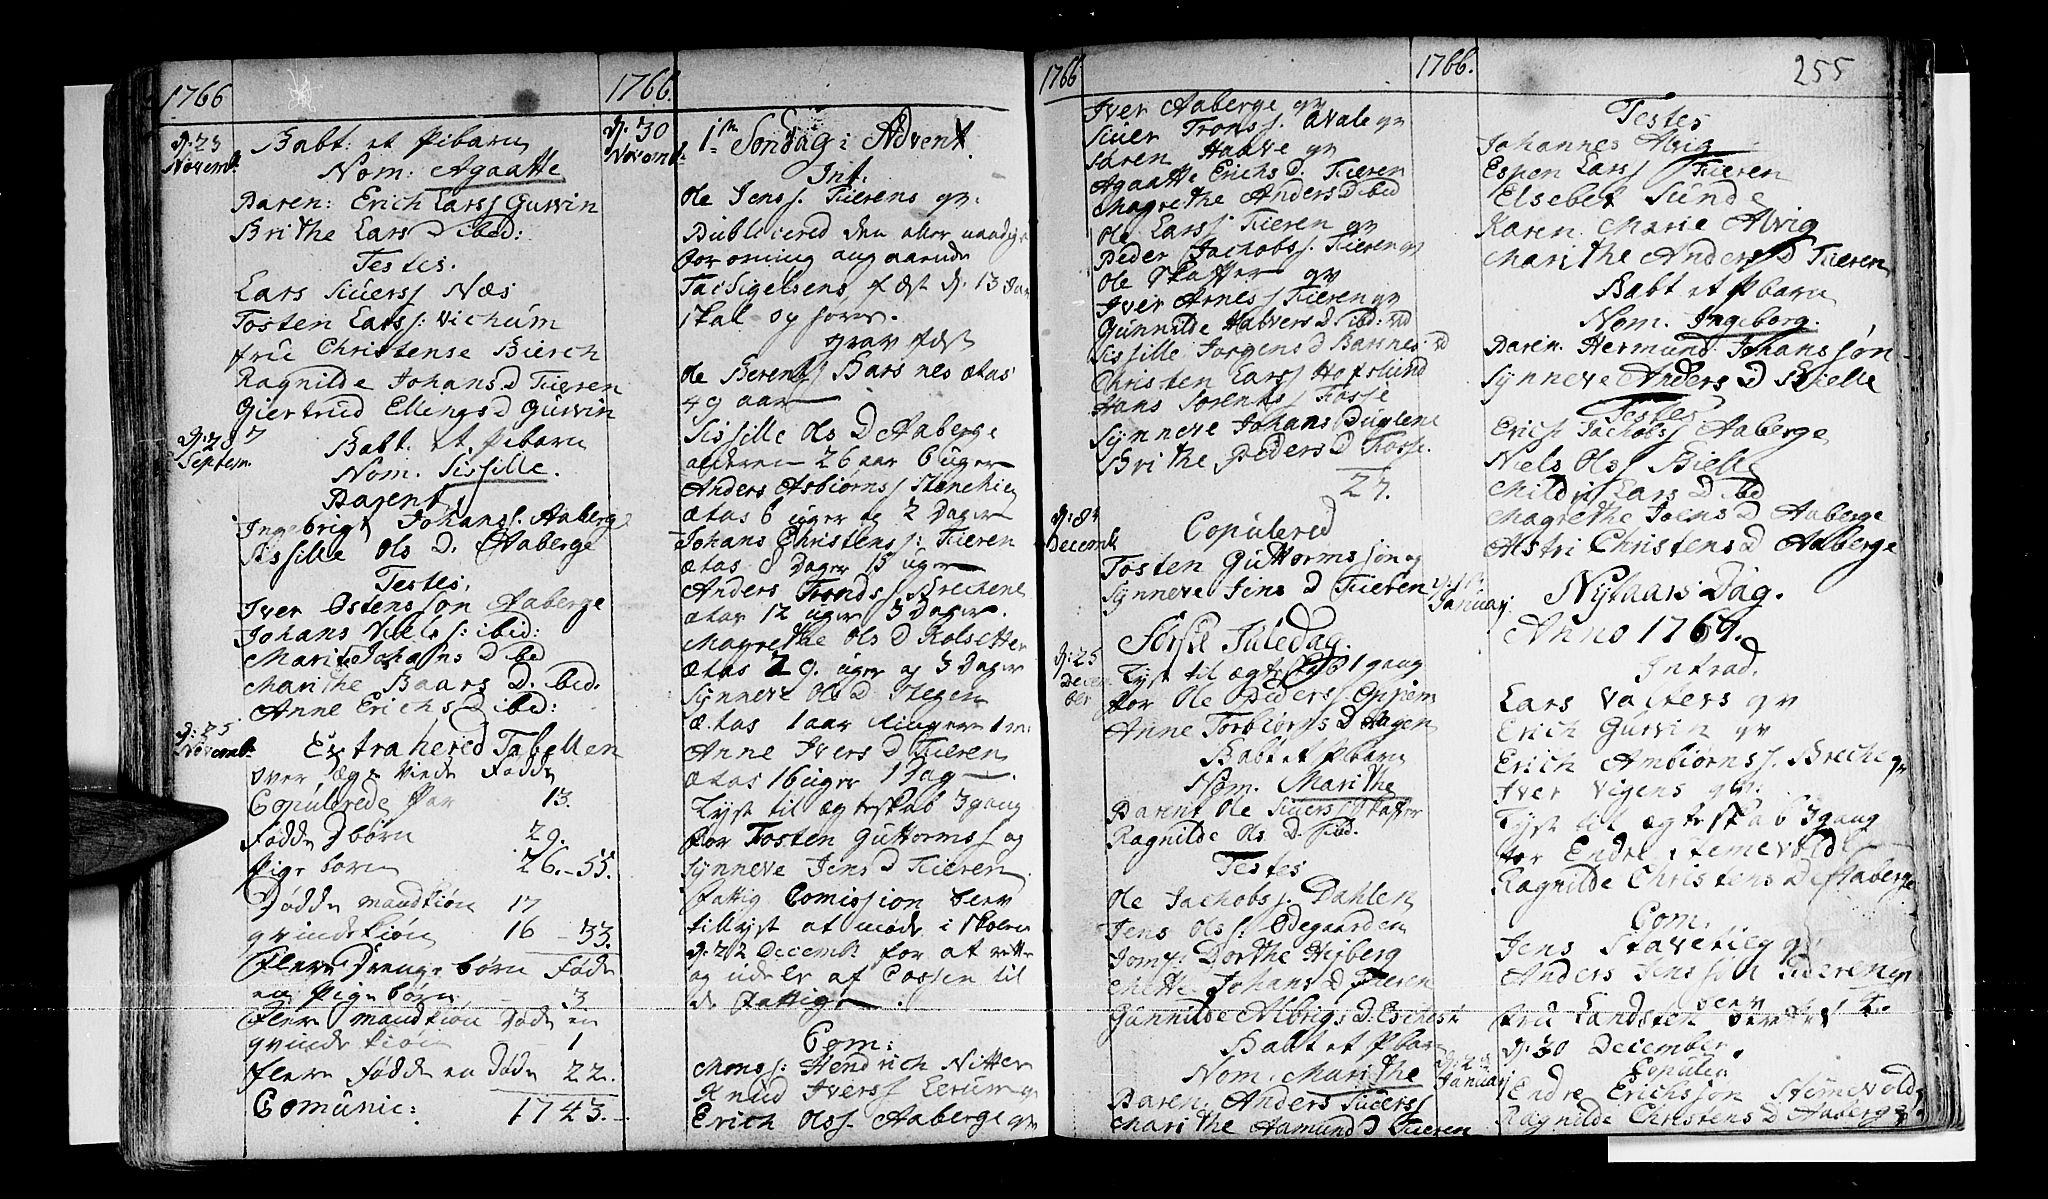 1766
D: 23
Novemb:
Babt: et Pibarn
Nom: Agaatte
Paren: Erich Larss Gurvin
Brithe Lars D ibid:
Testes.
Lars Siuerss Næs
Tosten Larss: Vichum
frue Christense Biersch
Ragnilde Johans D Fieren
Giertrud Ellings D Gurvin
D: 20
Septem
Babt. et Pibarn
Nom. Sissille.
Parent,
Ingebrigt Johanss. Aaberge
Sissille Ols D. Aaberge
Testes,
Iver Ostenssøn Aaberge
Johans Nielss: ibid:
Marite Johans D ibid
Marithe Baars D. ibid.
Anne Erichs D ibid:
D: 25
Novemb:
Extrahered Tabellen
over ægte viede Fødde
Copulerede Par 13.
Fødde D børn 29.
Pige børn 26.-55.
Dødde mandkiøn 17
qvindekiøn 16 - 33.
flere Drenge børn Føde
en Pige børn - 3
flere mandkiøn Døde en
qvindekiøn - 1
flere Fødde en Døde 22.
Comunic: 1743.
1766.
D: 30
Novemb:
1te Søndag i Advent.
Int.
Ole Jenss. Fierens qv:
Publicered den aller naadigste
forordning angaaende
Tacksigelsens fest D. 13 Jan
skal og
grav fest
Ole Berentss Barsnes ætas
49 aar
Sissille Ols D Aaberge
alderen 26 aar 6 uger
Anders Asbiørnss Stenehien
ætas 6 uger og 2 Dager
Johans Christenss: Fieren
ætas 8 Dager 15 uger
Anders Trondss Brechene
ætas 12 uger 3 Dager.
Magrethe Ols D Kolsetter
ætas 29. uger og 3 Dager
Synneve Ols D Stegen
ætas 1 aar
Anne Ivers D Fieren
ætas 16 uger 1 Dag
Lyst til ægteskab 3 gang
for Tosten Guttormss og
Synneve Jens D Fieren
fattig Comission blev
tillyst at møde i Skolen
D: 22 Decemb for at
og af Cassen til
de fattige.
Com:
Monss: Hendrich Nitter
Knud Iverss Lerum qv
Erich Olss. Aaberge qv
1766
Iver Aaberge qv
Siuer Tronss. Qvale qv
Søren Haave qv
Agaatte Erichs D. Fieren
Magrethe Anders D ibid
Ole Larss Fieren qv
Peder Jachobss. Fieren qv
Ole Skaffer qv
Iver Arness Fieren qv
Gunnilde Halvers D ibid:
Sissille Jorgens D Barsnes
Christen Larss Hofslund
Hans Sorentss Fosse
Synneve Johans Duglene
Brithe Peders D Fosse.
27.
D: 8de
Decemb
Copulered
Tosten Guttormssøn og
Synneve Jens D Fieren
D: 25
Decem
ber
Første Juledag.
Lyst til ægteskab 1 gang
for Ole Pederss
Anne Torbiørns D Hagen
Babt et Pbarn
Nom. Marithe
Parent Ole Siuerss Skaffer
Ragnilde Ols D. ibid.
Testes
Ole Jachobss. Dahlen
Jens Olss: Ødegaarden
Jomf: Dorthe Heiberg
Mette Johans D Fieren
Gunnilde Albrigs D.
Babt et Pbarn
Nom. Marithe
Paren: Anders Siuerss
Marithe Aamund D Fieren
1766.
255
Testes
Johannes Alvig
Espen Larss Fieren
Elsebet Sunde
Karen Marie Alvig
Marithe Anders D Fieren
Babt et Pbarn
Nom. Ingeborg.
Paren. Hermund Johanssøn
Synneve Anders D Bielle
Testes
Erich Jachobss Aaberge
Niels Olss Bielle
Mildri Lars D ibid
Magrethe Joens D Aaberge
Alstri Christens D Aaberge
D: 1te
Januarj
Nytaars Dag.
Anno 1767.
Intrad.
Lars Valters qv
Erich Gurvin qv
Erich Ambiørnss. Breche qv
Iver Vigens qv:
Lyst til ægteskab 3 gang
for Endre Stemevold
Ragnilde Christens D Aaberge
Com.
Jens Stavetieg qv
Anders Jenssøn Fieren qv
Fru Landsten
D: 30 December.
D: 2
Januarj
Copuler
Endre Erichssøn Stemevold
Ragnilde Christens D Aaberge